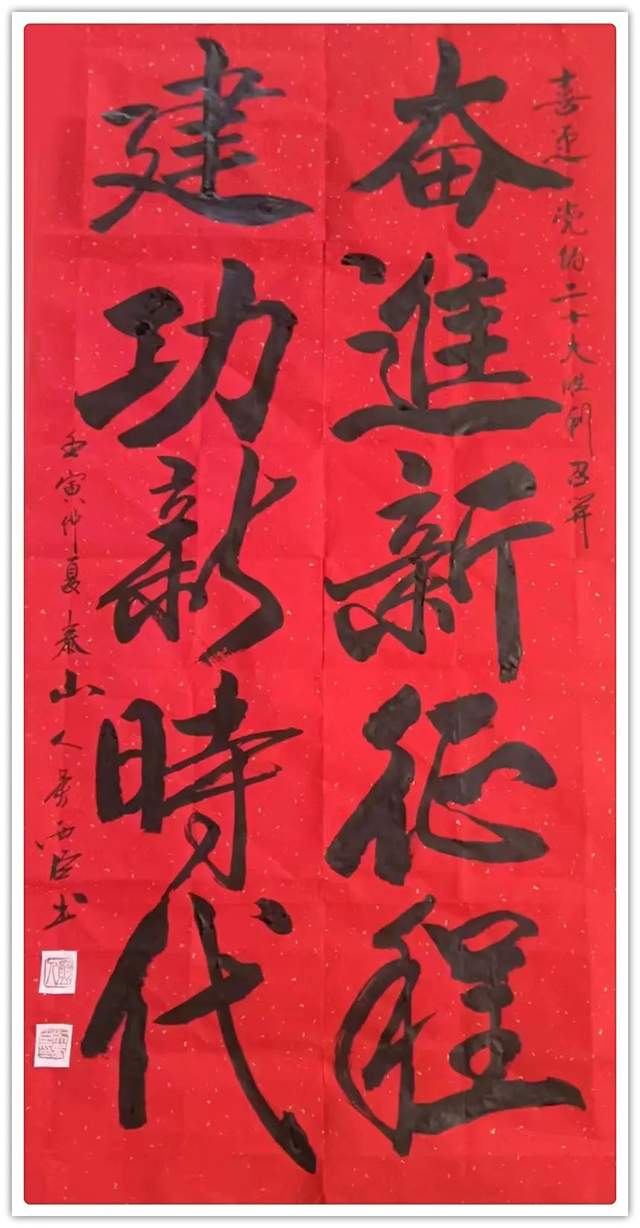 喜迎党的二十大胜利召开
奋進新征程
建功新時代
壬寅仲夏泰山人景西臣书